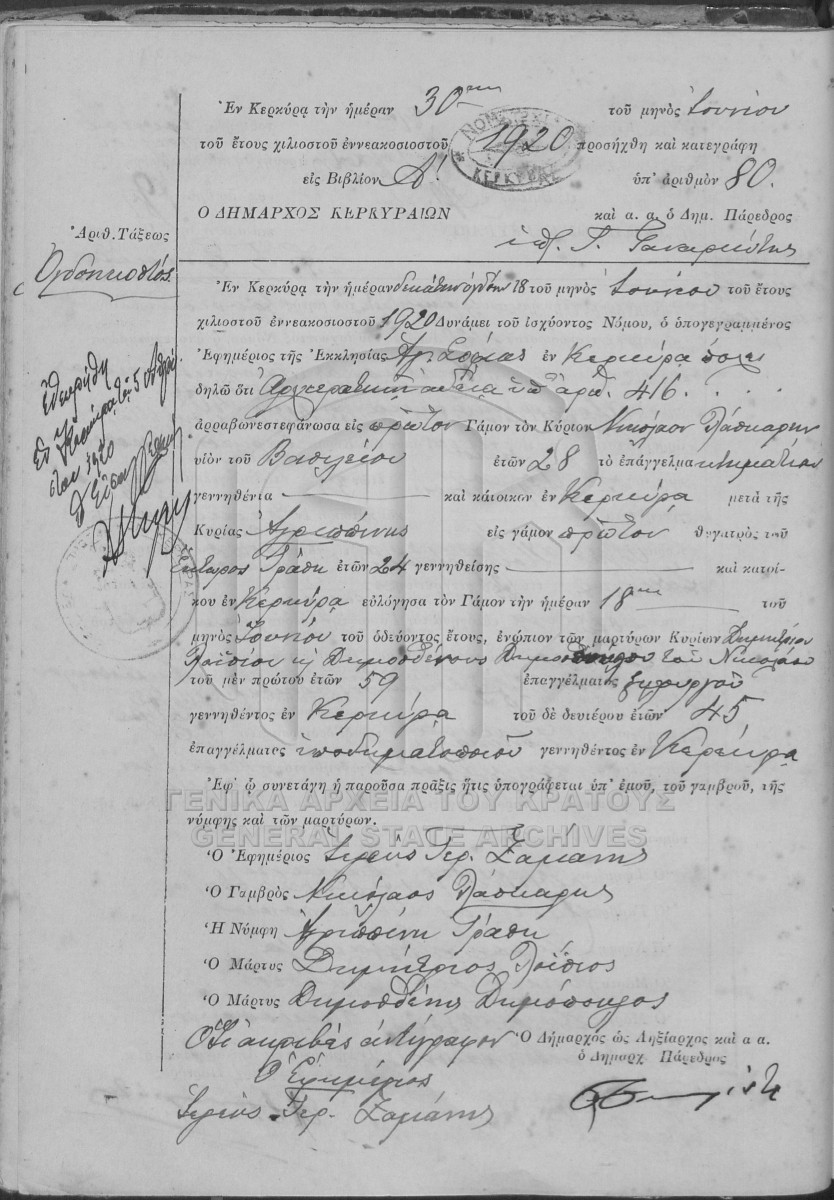 Ἐν Κερκύρᾳ τὴν ἡμέραν 30ην τοῦ μηνὸς Ἰουνίου
τοῦ ἔτους χιλιοστοῦ ἐννεακοσιοστοῦ 1920 προσήχθη καὶ κατεγράφη
εἰς Βιβλίον Α! ὑπ' ἀριθμὸν 80.
Ο ΔΗΜΑΡΧΟΣ ΚΕΡΚΥΡΑΙΩΝ καὶ α. α. ὁ Δημ. Πάρεδρος
ΝΟΜΑΡΧΙΑ
ΚΕΡΚΥΡΑΣ
Ἀριθ. Τάξεως
Ὀγδοηκοστός
Ἐν Κερκύρᾳ τὴν ἡμέραν δεκάτην ὀγδόην 18 τοῦ μηνὸς Ἰουνίου τοῦ ἔτους
χιλιοστοῦ ἐννεακοσιοστοῦ 1920 Δυνάμει τοῦ ἰσχύοντος Νόμου, ὁ ὑπογεγραμμένος
Ἐφημέριος τῆς Ἐκκλησίας Ἁγ. Σοφίας ἐν Κερκύρᾳ πόλει
δηλῶ ὅτι Ἀρχιερατικῇ ἀδείᾳ ὑπ' ἀρ. 416. . . .
ἀρραβωνεστεφάνωσα εἰς πρῶτον Γάμον τὸν Κύριον Νικόλαον Λάσκαρην
υἱὸν τοῦ Βασιλείου ἐτῶν 28 τὸ ἐπάγγελμα κτηματίαν
γεννηθέντα καὶ κάτοικον ἐν Κερκύρᾳ μετὰ τῆς
Κυρίας Ἀγριππίνης εἰς γάμον πρῶτον θυγατρὸς τοῦ
Γράπη ἐτῶν 24 γεννηθείσης καὶ κατοί-
κου ἐν Κερκύρᾳ εὐλόγησα τὸν Γάμον τὴν ἡμέραν 18ην τοῦ
μηνὸς Ἰουνίου τοῦ ὁδεύοντος ἔτους, ἐνώπιον τῶν μαρτύρων Κυρίων Δημητρίου
Λοϊσίου κ Δημοσθένους Δημοπούλου τοῦ Νικολάου
τοῦ μὲν πρώτου ἐτῶν 59 ἐπαγγέλματος ξυλουργοῦ
γεννηθέντος ἐν Κερκύρᾳ τοῦ δὲ δευτέρου ἐτῶν 45
ἐπαγγέλματος ὑποδηματοποιοῦ γεννηθέντος ἐν Κερκύρᾳ
Ἐφ' ᾧ συνετάγη ἡ παροῦσα πρᾶξις ἥτις ὑπογράφεται ὑπ' ἐμοῦ, τοῦ γαμβροῦ, τῆς
νύμφης καὶ τῶν μαρτύρων.
ΓΕΝΙΚΑ ΑΡΧΕΙΑ ΤΟΥ ΚΡΑΤΟΥΣ
GENERAL STATE ARCHIVES
Ὁ Ἐφημέριος Ἱερεὺς Γερ. Ζαμάνης
Ὁ Γαμβρὸς Νικόλαος Λάσκαρης
Ἡ Νύμφη Ἀγριππίνη Γράπη
Ὁ Μάρτυς Δημήτριος Λοΐσιος
Ὁ Μάρτυς Δημοσθένης Δημόπουλος
Ὅτι ἀκριβὲς ἀντίγραφον Ὁ Δήμαρχὸς ὡς Ληξίαρχος καὶ α α.
ὁ Δημαρχ. Πάρεδρος
Ὁ Ἐφημέριος
Ἱερεὺς Γερ. Ζαμάνης
Ἐθεωρήθη
Ἐν Κερκύρᾳ τῇ 5
1920